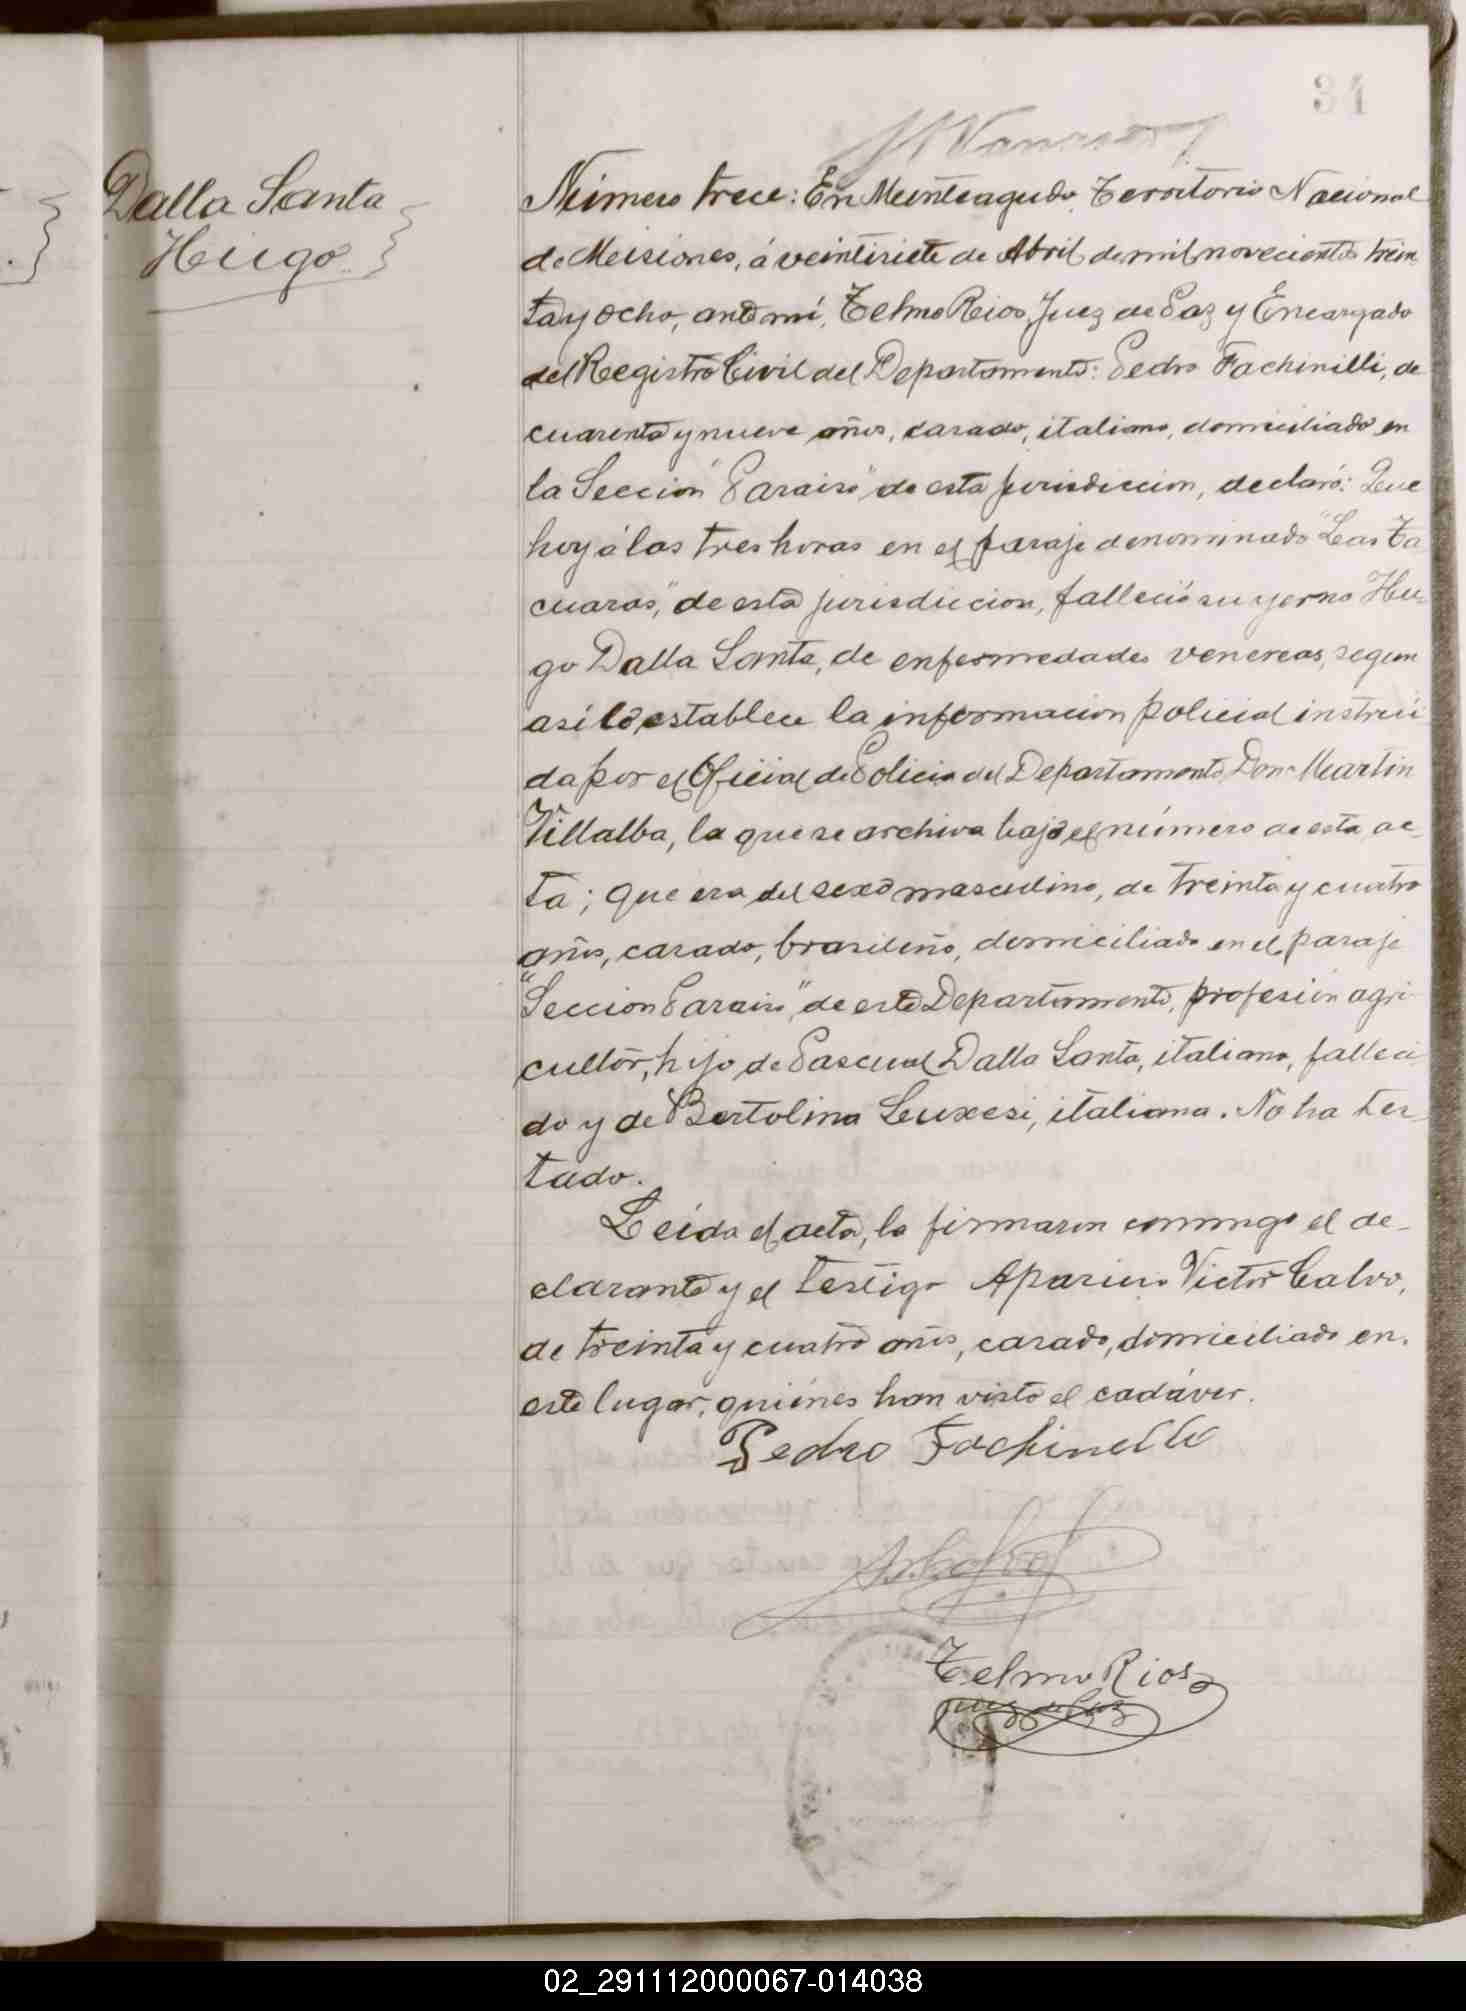 34
Dalla Santa
Hugo
Número trece: En Monteagudo, Territorio Nacional
de Misiones, á veintisiete de Abril de mil novecientos trein
ta y ocho, ante mí, Telmo Rios, Juez de Paz y Encargado
del Registro Civil del Departamento: Pedro Fachinilli, de
cuarenta y nueve años, casado, italiano, domiciliado en
la Sección "Paraiso" de esta jurisdiccion, declaró: Que
hoy á las tres horas en el paraje denominado "Las Ta
cuaras", de esta jurisdiccion, falleció su yerno Hu-
go Dalla Santa, de enfermedades venereas, segun
así lo establece la informacion policial instrui
da por el Oficial de Policia del Departamento, Don Martin
Villalba, la que se archiva bajo el número de esta ac-
ta; que era del sexo masculino, de treinta y cuatro
años, casado, brasileño, domiciliado en el paraje
"Seccion Paraiso", de este Departamento, profesión agri
cultor, hijo de Pascual Dalla Santa, italiano, falleci
do y de Bertolina Luxesi, italiana. No ha tes-
tado.
Leída el acta, la firmaron conmigo el de-
clarante y el testigo Aparicio Victor Calvo,
de treinta y cuatro años, casado, domiciliado en
este lugar, quiénes han visto el cadáver.
Pedro Fachinelli
Telmo Rios
Juez de Paz
02_291112000067-014038